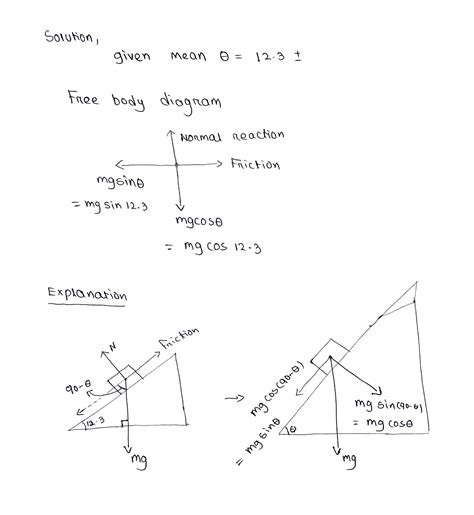 Solution,
given mean θ = 12.3 ±
Free body diagram
Normal reaction
Friction
mgsinθ
= mg sin 12.3
mgcosθ
= mg cos 12.3
Explanation
N
Friction
90-θ
12.3
mg
mg cos(90-θ)
= mg sinθ
mg sin(90-θ)
= mg cosθ
θ
mg